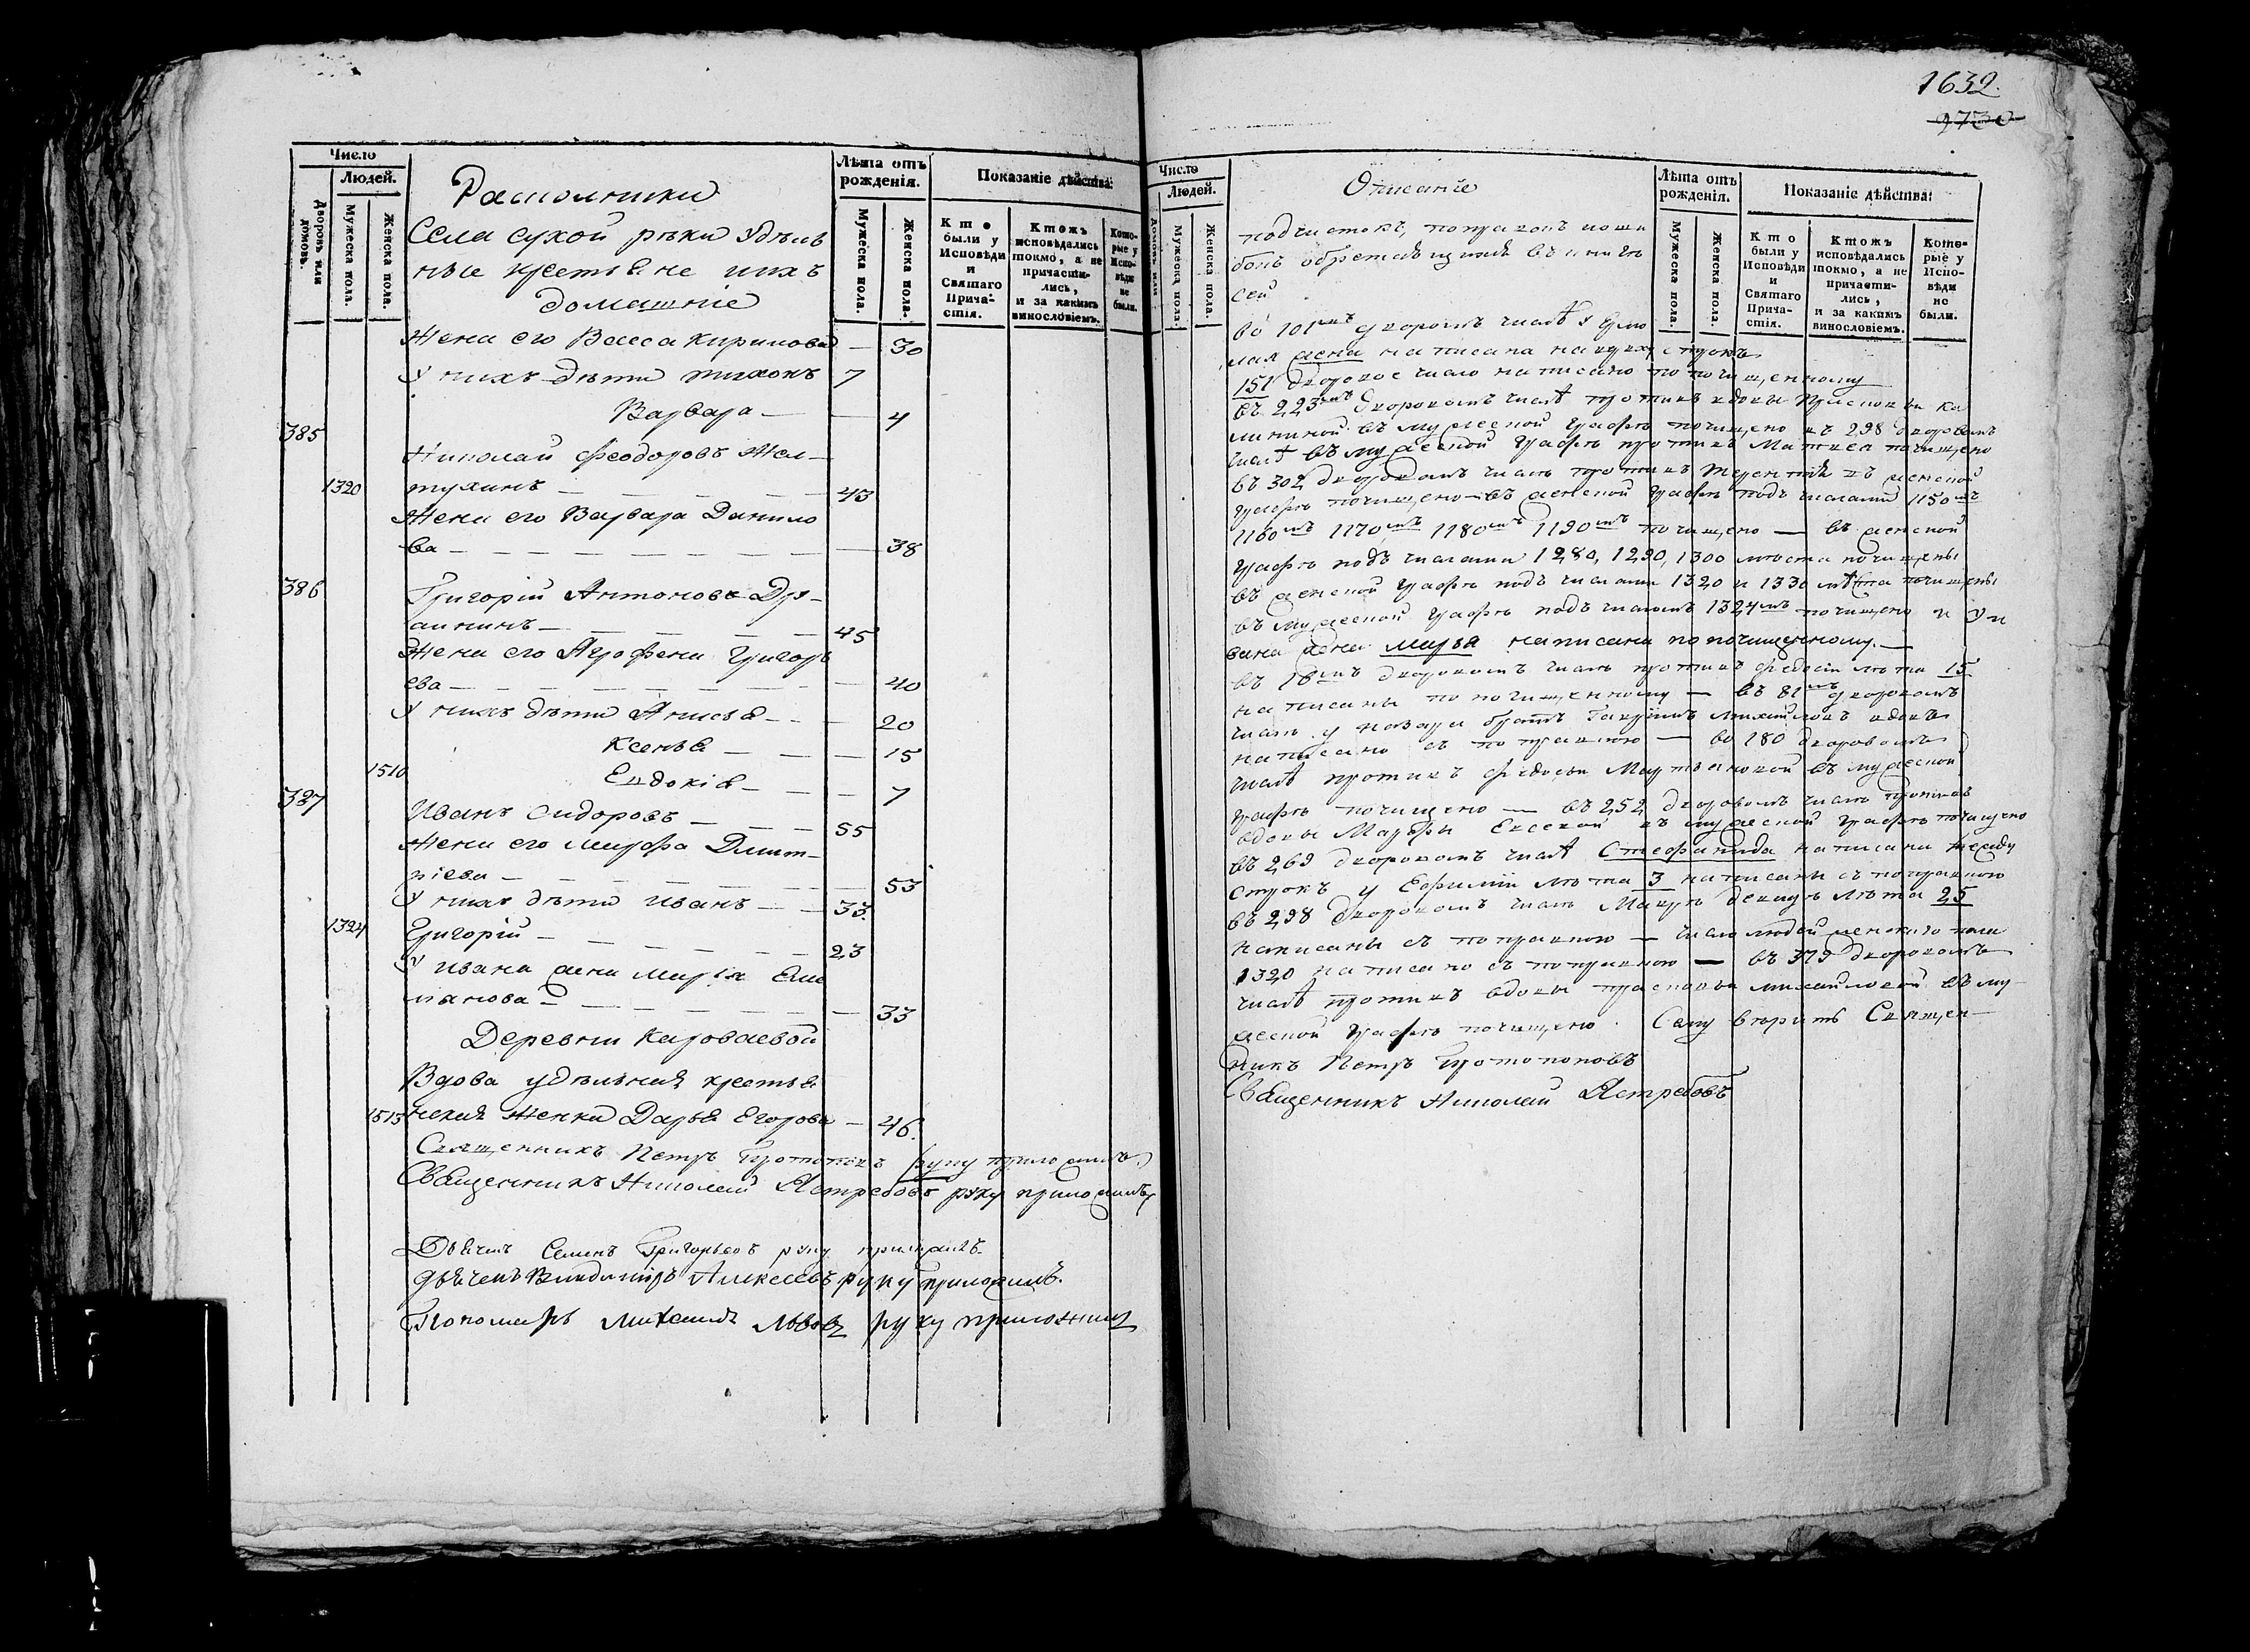 Число
Людей.
Дворовъ или домовъ.
Мужеска пола.
Женска пола.
Лѣта отъ рожденія.
Мужеска пола.
Женска пола.
Показаніе дѣйства:
Кто были у Исповѣди и Святаго Прича-стія.
Ктожъ исповѣдались токмо, а не причасти-лись, и за какимъ винословіемъ.
Кото-рые у Испо-вѣди не были.
Раскольники
Села сухой рѣки удѣль
ные крестьяне ихъ
домашніе
Жена его Васса Кирилова — 30
У нихъ дѣти Тихонъ 7
Варвара — — 4
385
Николай Феодоровъ Жел-
1320 тухинъ — — — — — 43
Жена его Варвара Данило
ва — — — — — — — — 38
386
Григорій Антоновъ Дру-
жининъ — — — — — 45
Жена его Агрофена Григорь
ева — — — — — — — — 40
У нихъ дѣти Анисья — — 20
Ксенья — — — 15
1510 Евдокія — — — 7
387
Иванъ Сидоровъ — — — 55
Жена его Марфа Димит-
ріева — — — — — — — 53
У нихъ дѣти Иванъ — — 33.
1324 Григорій — — — — — — 23
У Ивана жена Марья Еме
льянова — — — — — — 33
Деревни Кароваевой
Вдова удѣльная крестья
1513 нская Женка Дарья Егорова — 46.
Священникъ Петръ Протопоповъ руку приложилъ.
Священникъ Николай Ястребовъ руку приложилъ
Дьячекъ Семенъ Григорьевъ руку приложилъ.
дьячекъ Владиміръ Алексеевъ руку приложилъ.
Пономарь Михаилъ Львовъ руку приложилъ
1632.
9730
Число
Людей.
Мужеска пола.
Женска пола.
Лѣта отъ рожденія.
Мужеска пола.
Женска пола.
Показаніе дѣйства:
Кто были у Исповѣди и Святаго Прича-стія.
Ктожъ исповѣдались токмо, а не причасти-лись, и за какимъ винословіемъ.
Кото-рые у Испо-вѣди не были.
Описаніе
подчистокъ, поправокъ
обретающимся въ книгѣ
сей
во 101мъ дворомъ числѣ у
жена написана на верху строкъ
151 дворовое число написано по почищенному
въ 223мъ дворовомъ числѣ противъ вдовы Прасковьи Ка
лининой въ мужеской графѣ почищено въ 298 дворовомъ
числѣ въ мужеской графѣ противъ Матвея почищено
въ 302 дворовомъ числѣ противъ Терентія въ женской
графѣ почищено — въ женской графѣ подъ числами 1150мъ
1160мъ 1170мъ 1180мъ 1190мъ почищено — въ женской
графѣ подъ числами 1280, 1290, 1300 мѣста почищены
въ женской графѣ подъ числами 1320 и 1330 мѣста почищены
въ мужеской графѣ подъ числомъ 1324мъ почищено и у и
вана жена Марья написана по почищенному. —
въ 18мъ дворовомъ числѣ противъ Федосіи лѣта 15
написаны по почищенному — въ 81мъ дворовомъ
числѣ у Назара братъ Михайловъ вдовъ
написано съ поправкою — во 180 дворовомъ
числѣ противъ Федосьи Мартьяновой въ мужеской
графѣ почищено — въ 252 дворовомъ числѣ противъ
вдовы Марфы въ мужеской графѣ почищено
въ 269 дворовомъ числѣ Стефанида написана между
строкъ у Ефиміи лѣта 3 написаны съ поправкою
въ 298 дворовомъ числѣ лѣта 25
написаны съ поправкою — число людей женскаго пола
1320 написано съ поправкою — въ 379 дворовомъ
числѣ противъ вдовы Прасковьи Михайловой въ му-
жеской графѣ почищено. Священ-
никъ Петръ Протопоповъ
Священникъ Николай Ястребовъ